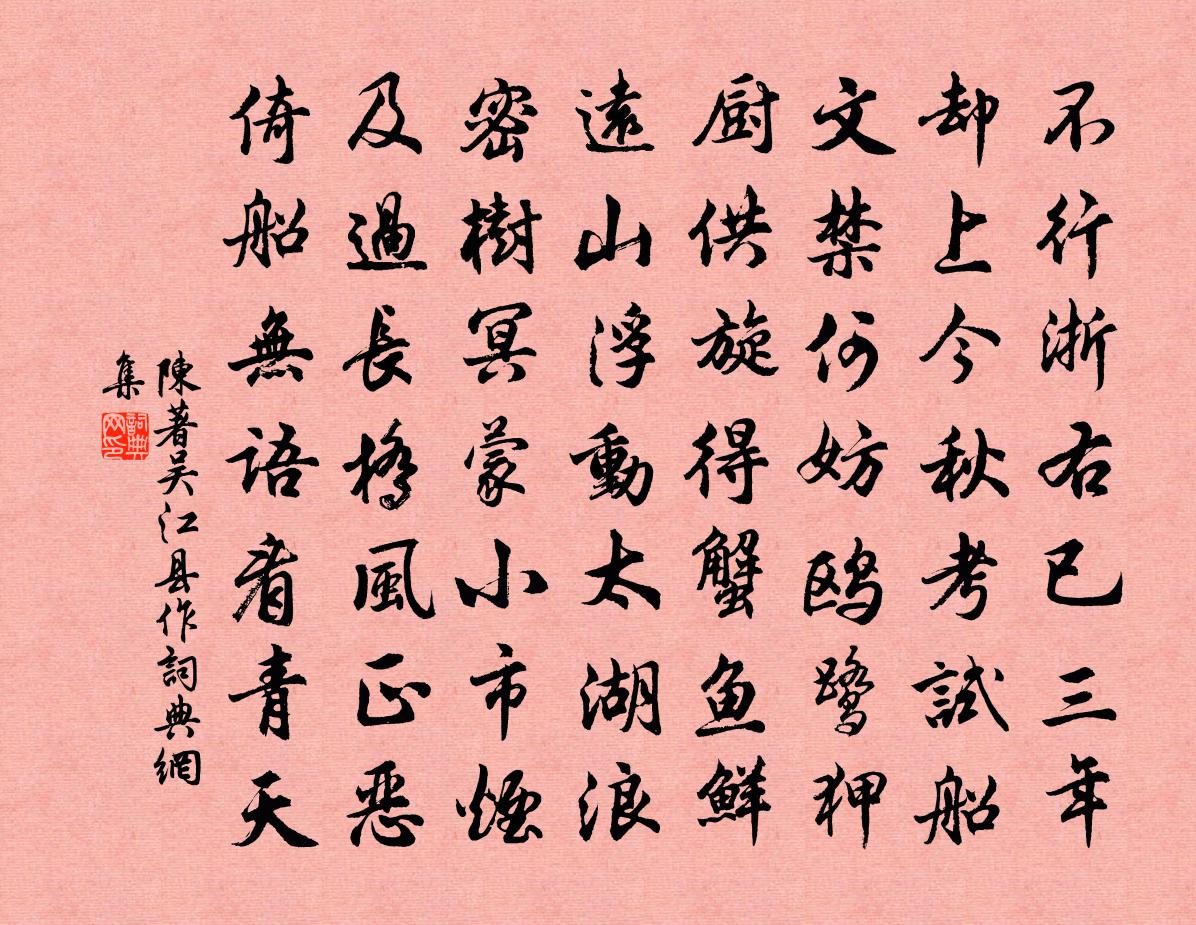 不行浙右已三年
却上今秋考試船
文禁何妨鸥鹭狎
厨供旋得蟹鱼鮮
遠山浮動太湖浪
密樹冥蒙小市煙
及過長橋風正恶
倚船無語看青天
陳著吴江县作詞典網
集
詞典网印